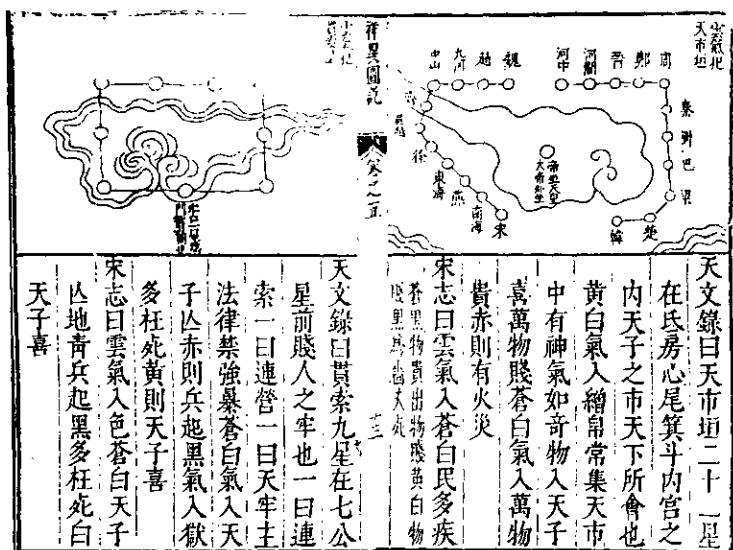 雲氣犯
天市垣
周
鄭
晉
河間
河中
魏
趙
九河
中山
秦
蜀
巴
梁
楚
韓
徐
東海
燕
南海
宋
天文錄曰天市垣二十一星
在氐房心尾箕斗内宫之
内天子之市天下所會也
黄白氣入繒帛常集天市
中有神氣如奇物入天子
喜萬物賤蒼白氣入萬物
貴赤則有火災
宋志曰雲氣入蒼白民多疾
蒼黑物貴出物賤黄白物
祥異圖説
卷之五
十三
天文錄曰貫索九星在七公
星前賤人之牢也一曰連
索一曰連營一曰天牢主
法律禁強暴蒼白氣入天
子亾赤則兵起黑氣入獄
多枉死黄則天子喜
宋志曰雲氣入色蒼白天子
亾地靑兵起黑多枉死白
天子喜